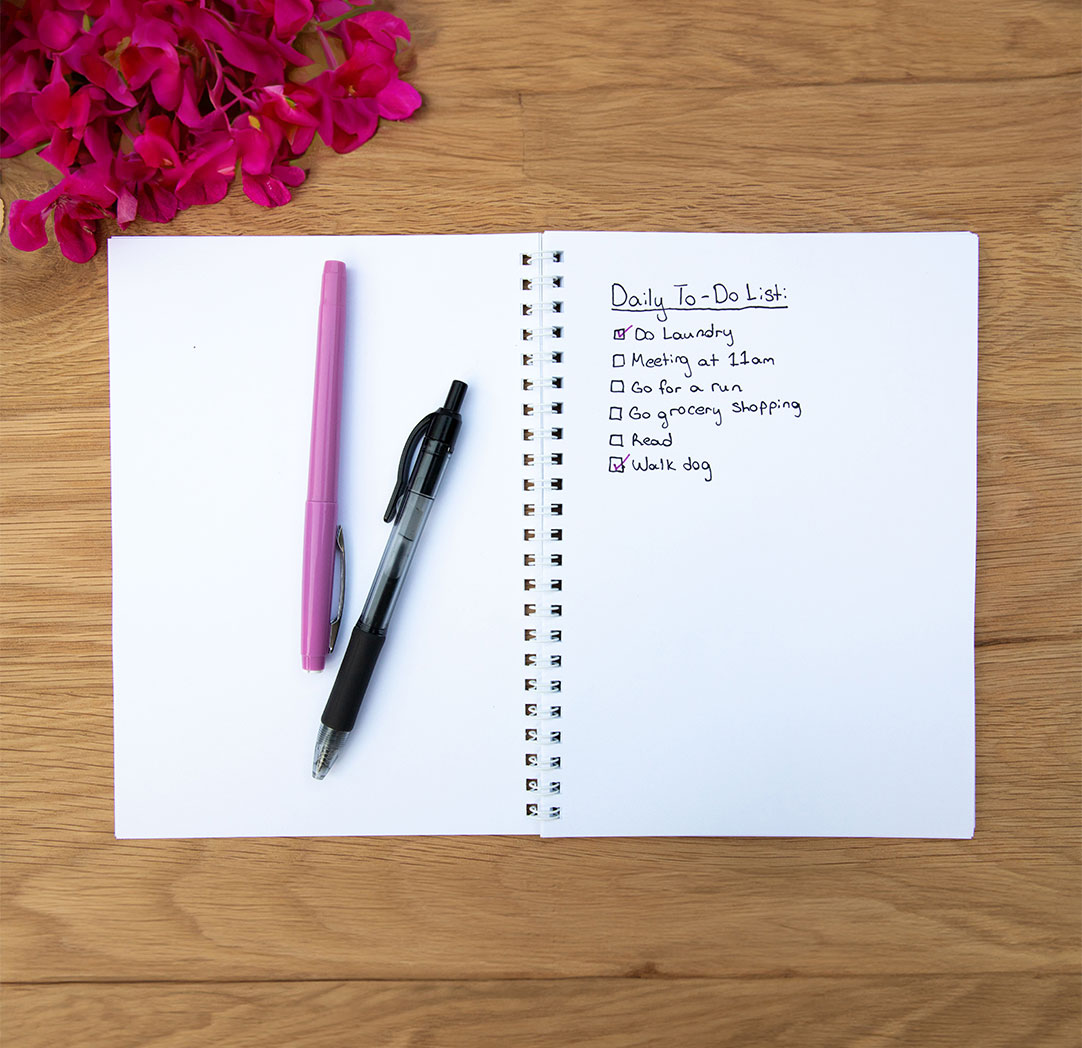 Daily To-Do List:
Do Laundry
Meeting at 11am
Go for a run
Go grocery shopping
Read
Walk dog